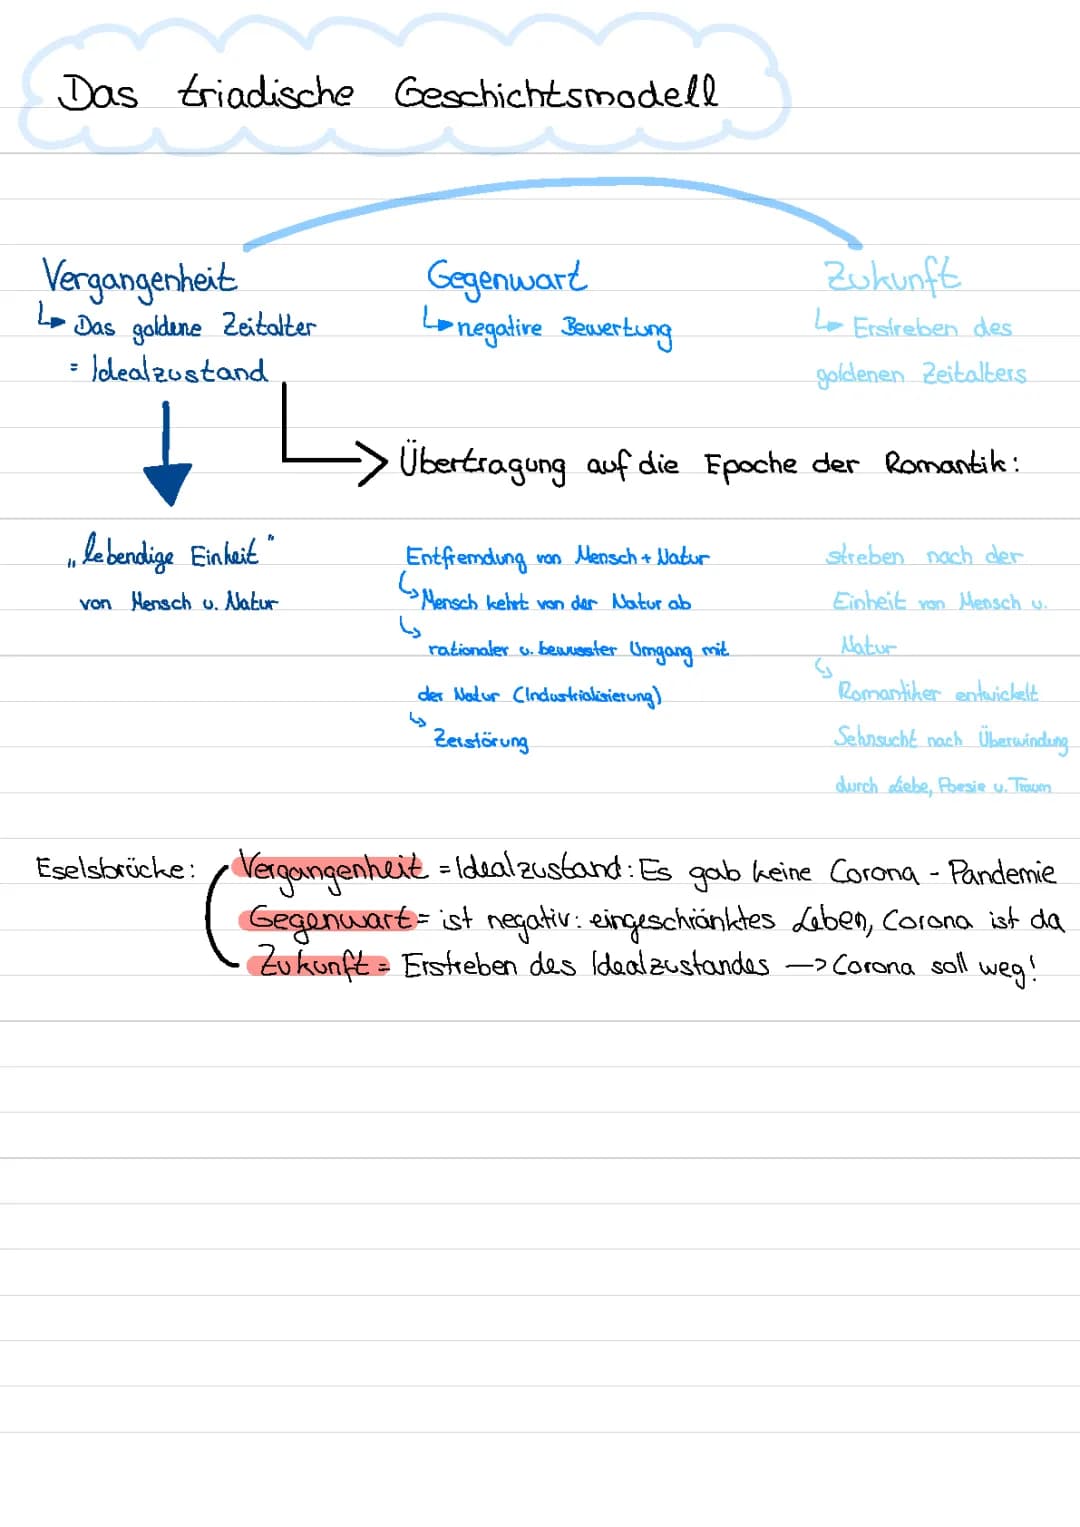 Das triadische Geschichtsmodell
Vergangenheit
↳ Das goldene Zeitalter
= Idealzustand
Gegenwart
↳ negative Bewertung
Zukunft
↳ Erstreben des
goldenen Zeitalters
Übertragung auf die Epoche der Romantik:
„lebendige Einheit"
von Mensch u. Natur
Entfremdung von Mensch + Natur
↳ Mensch kehrt von der Natur ab
↳ rationaler u. bewusster Umgang mit
der Natur (Industrialisierung)
↳ Zerstörung
streben nach der
Einheit von Mensch u.
Natur
↳ Romantiker entwickelt
Sehnsucht nach Überwindung
durch Liebe, Poesie u. Traum
Eselsbrücke: Vergangenheit = Idealzustand: Es gab keine Corona - Pandemie
Gegenwart = ist negativ: eingeschränktes Leben, Corona ist da
Zukunft = Erstreben des Idealzustandes —> Corona soll weg!